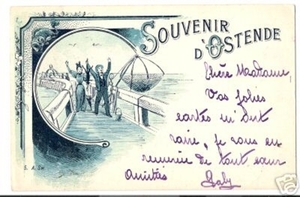 SOUVENIR
D'OSTENDE
Chère Madame,
Vos jolies
cartes m'ont
je vous en
remercie de tout cœur
Amitiés
Gaby